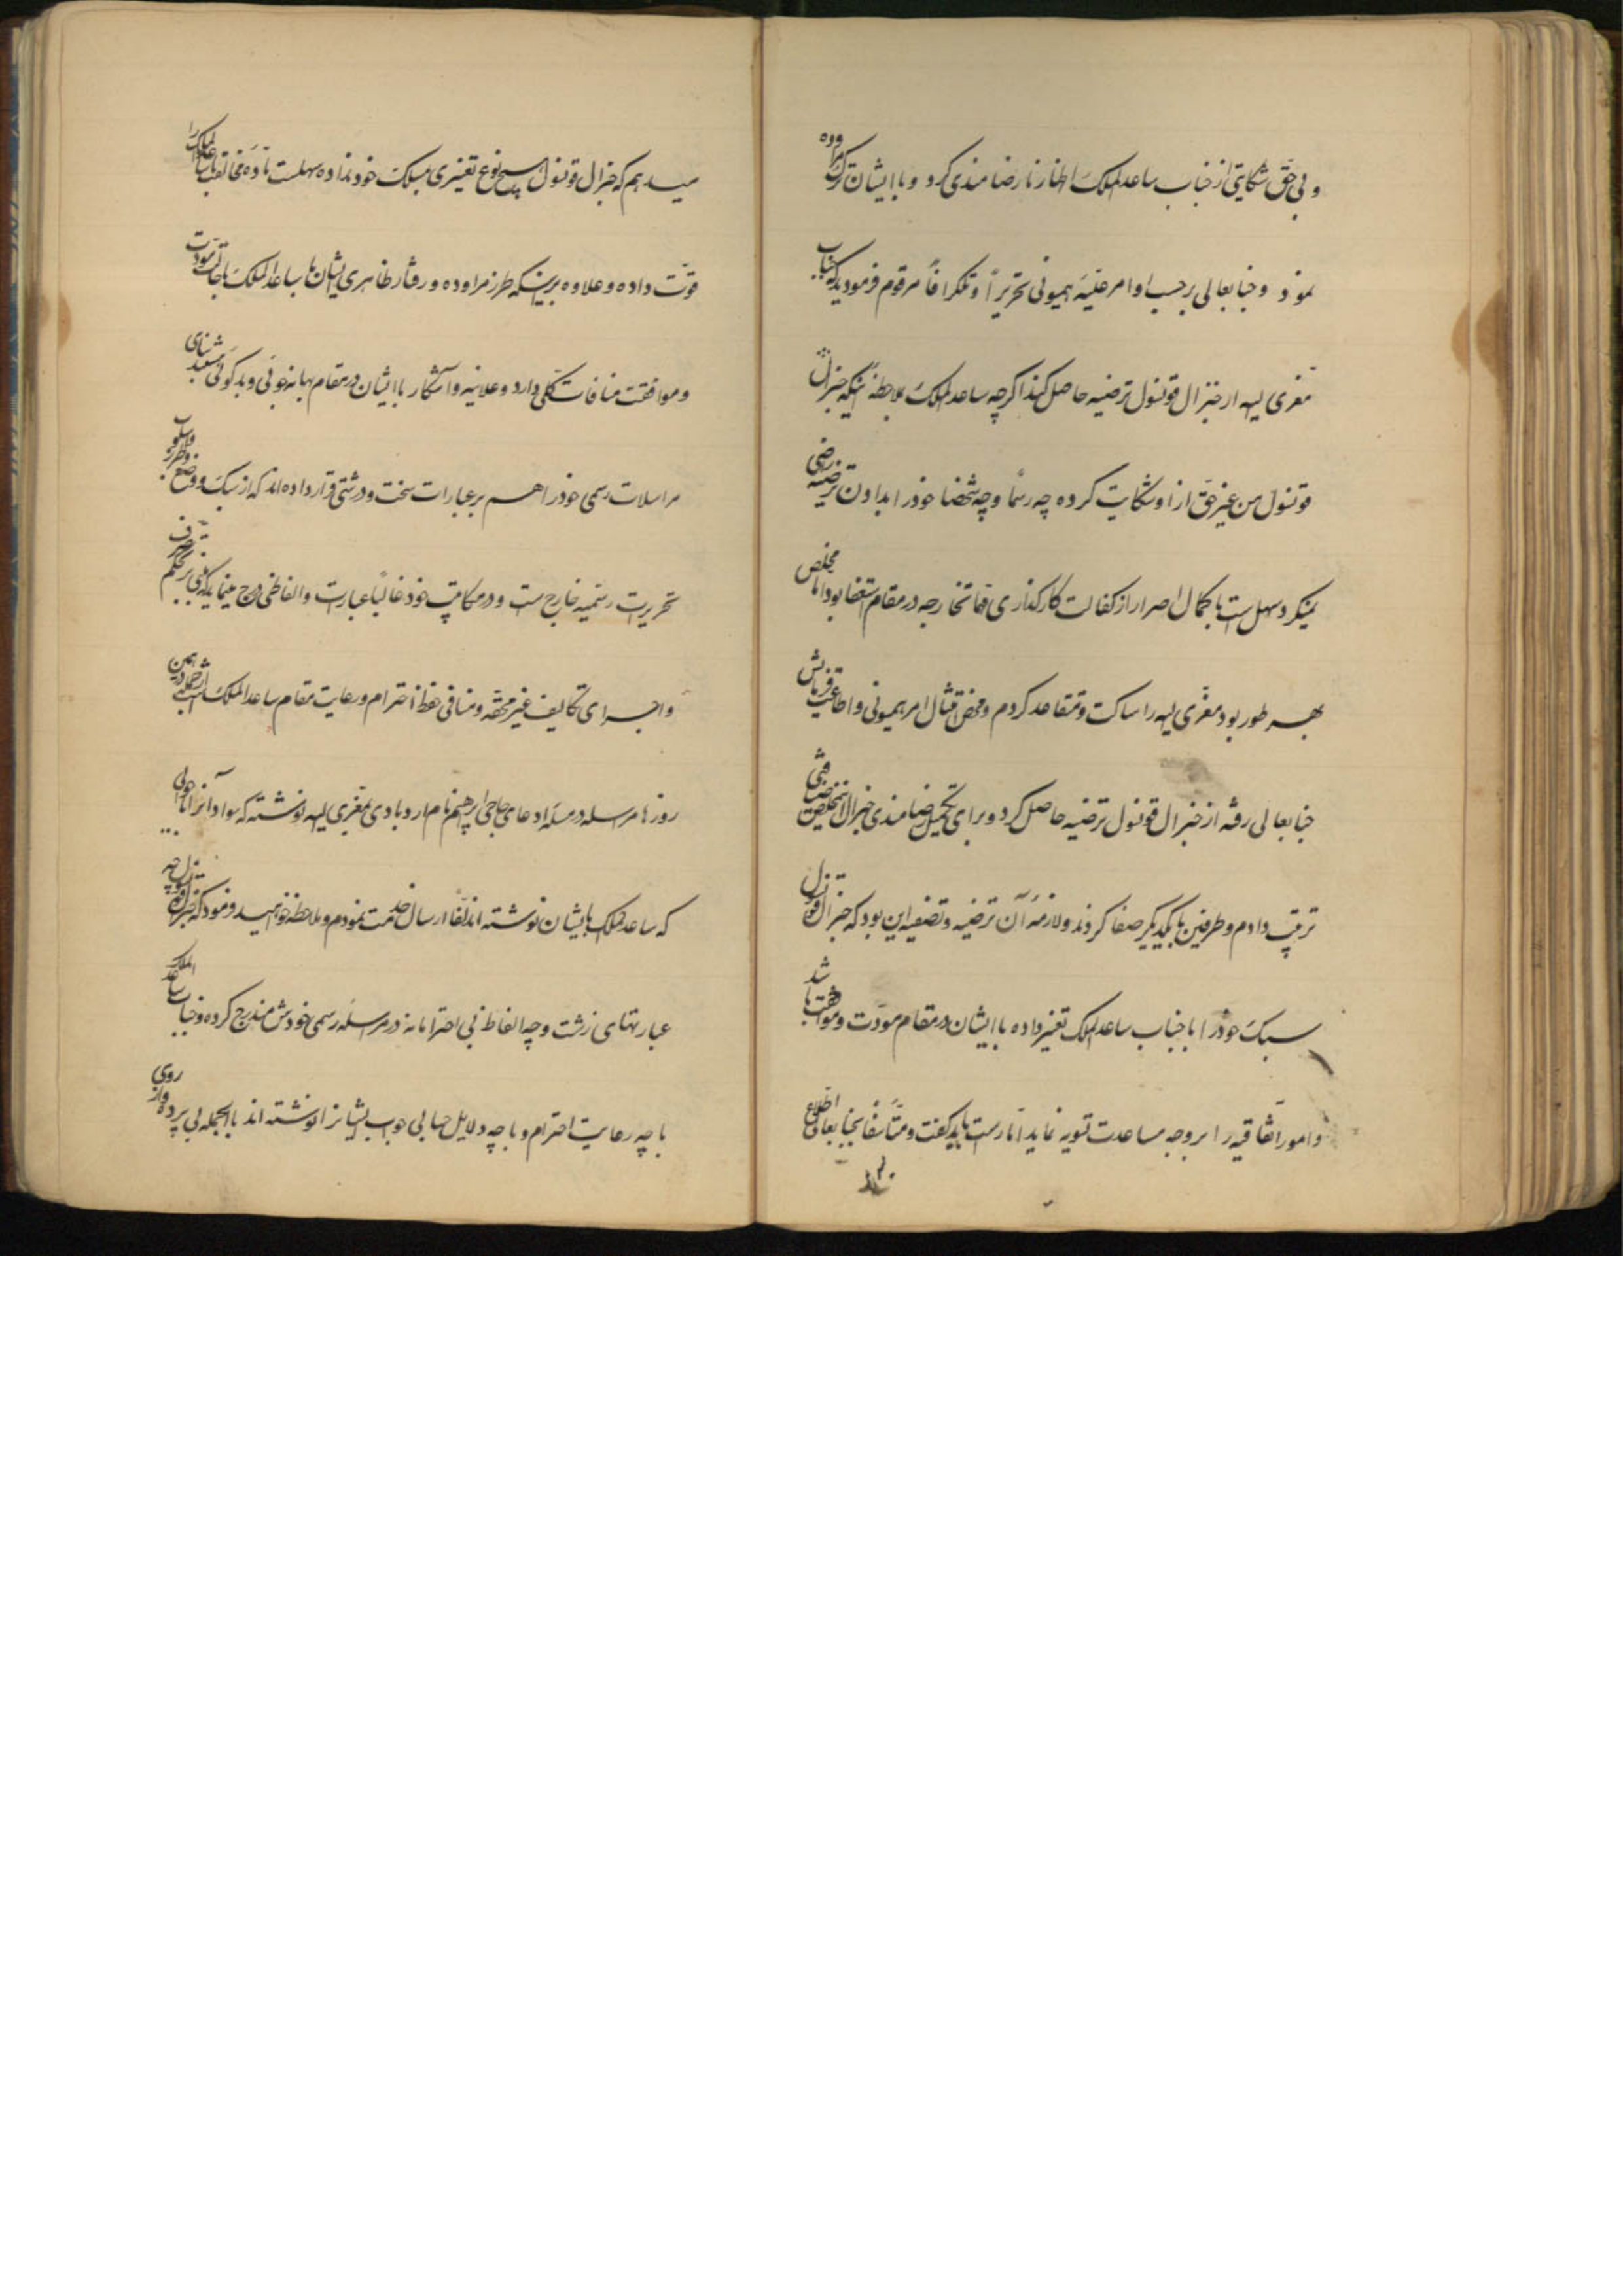 و بی حق شکایتی از جناب ساعدالملک اظهار نارضامندی کرد و با ایشان ترک مراوده
نمود و جنابعالی برحسب اوامر علیّه همیونی تحریراً و تلگرافاً مرقوم فرمودید که جناب
معزی الیه از جنرال قونسول ترضیه حاصل کند اگرچه ساعدالملک بملاحظه اینکه جنرال
قونسول من غیر حق از او شکایت کرده چه رسماً و چه شخصاً خود را بدادن ترضیه راضی
نمیکرد سهل است با کمال اصرار از کفالت کارگذاری مهام خارجه در مقام استعفا بود اما مخلص
بهر طور بود معزی الیه را ساکت و متقاعد کردم و محض امتثال امر همیونی و اطاعت فرمایش
جنابعالی رفته از جنرال قونسول ترضیه حاصل کرد و برای تکمیل رضامندی جنرال مخلص ضیافتی
ترتیب دادم و طرفین با یکدیگر صفا کردند و لازمه آن ترضیه و تصفیه این بود که جنرال قونسول
سبک خود را با جناب ساعدالملک تغییر داده با ایشان در مقام مودّت و موافقت باشد
و امور اتّفاقیه را بر وجه مساعدت تسویه نماید امّا راست باید گفت و متأسفاً بجنابعالی اطلاع
میدهم که جنرال قونسول بهیچ نوع تغییری بمسلک خود نداده سهلست مادّه مخالفت با ساعدالملک را
قوّت داده و علاوه بر اینکه طرز مراوده و رفتار ظاهری ایشان با ساعدالملک با حالت مودّت
و موافقت منافات کلّی دارد و علانیه و آشکار با ایشان در مقام بهانه جوئی و بدگوئی میباشند بنای
مراسلات رسمی خود را هم بر عبارات سخت و درشتی قرار داده اند که از سبک و وضع و طرز و اسلوب
تحریرات رسمیّه خارج است و در مکاتیب خود غالباً عبارت و الفاظی درج مینماید که مبنی بر تحکم و تصرف
و اجرای تکالیف غیر محقّه و منافی حفظ احترام و رعایت مقام ساعدالملک است از جمله در همین
روزها مراسله در مسئله ادعای حاجی ابراهیم نام اردوبادی بمعزی الیه نوشته که سواد آنرا با جوابی
که ساعدالملک بایشان نوشته اند لفّاً ارسال خدمت نمودم و ملاحظه خواهید فرمود که جنرال قونسول چه
عبارتهای زشت و چه الفاظ بی احترامانه در مراسله رسمی خودش مندرج کرده و جناب ساعدالملک
با چه رعایت احترام و با چه دلایل حسابی جواب ایشانرا نوشته اند بالجمله بی پرده و از روی